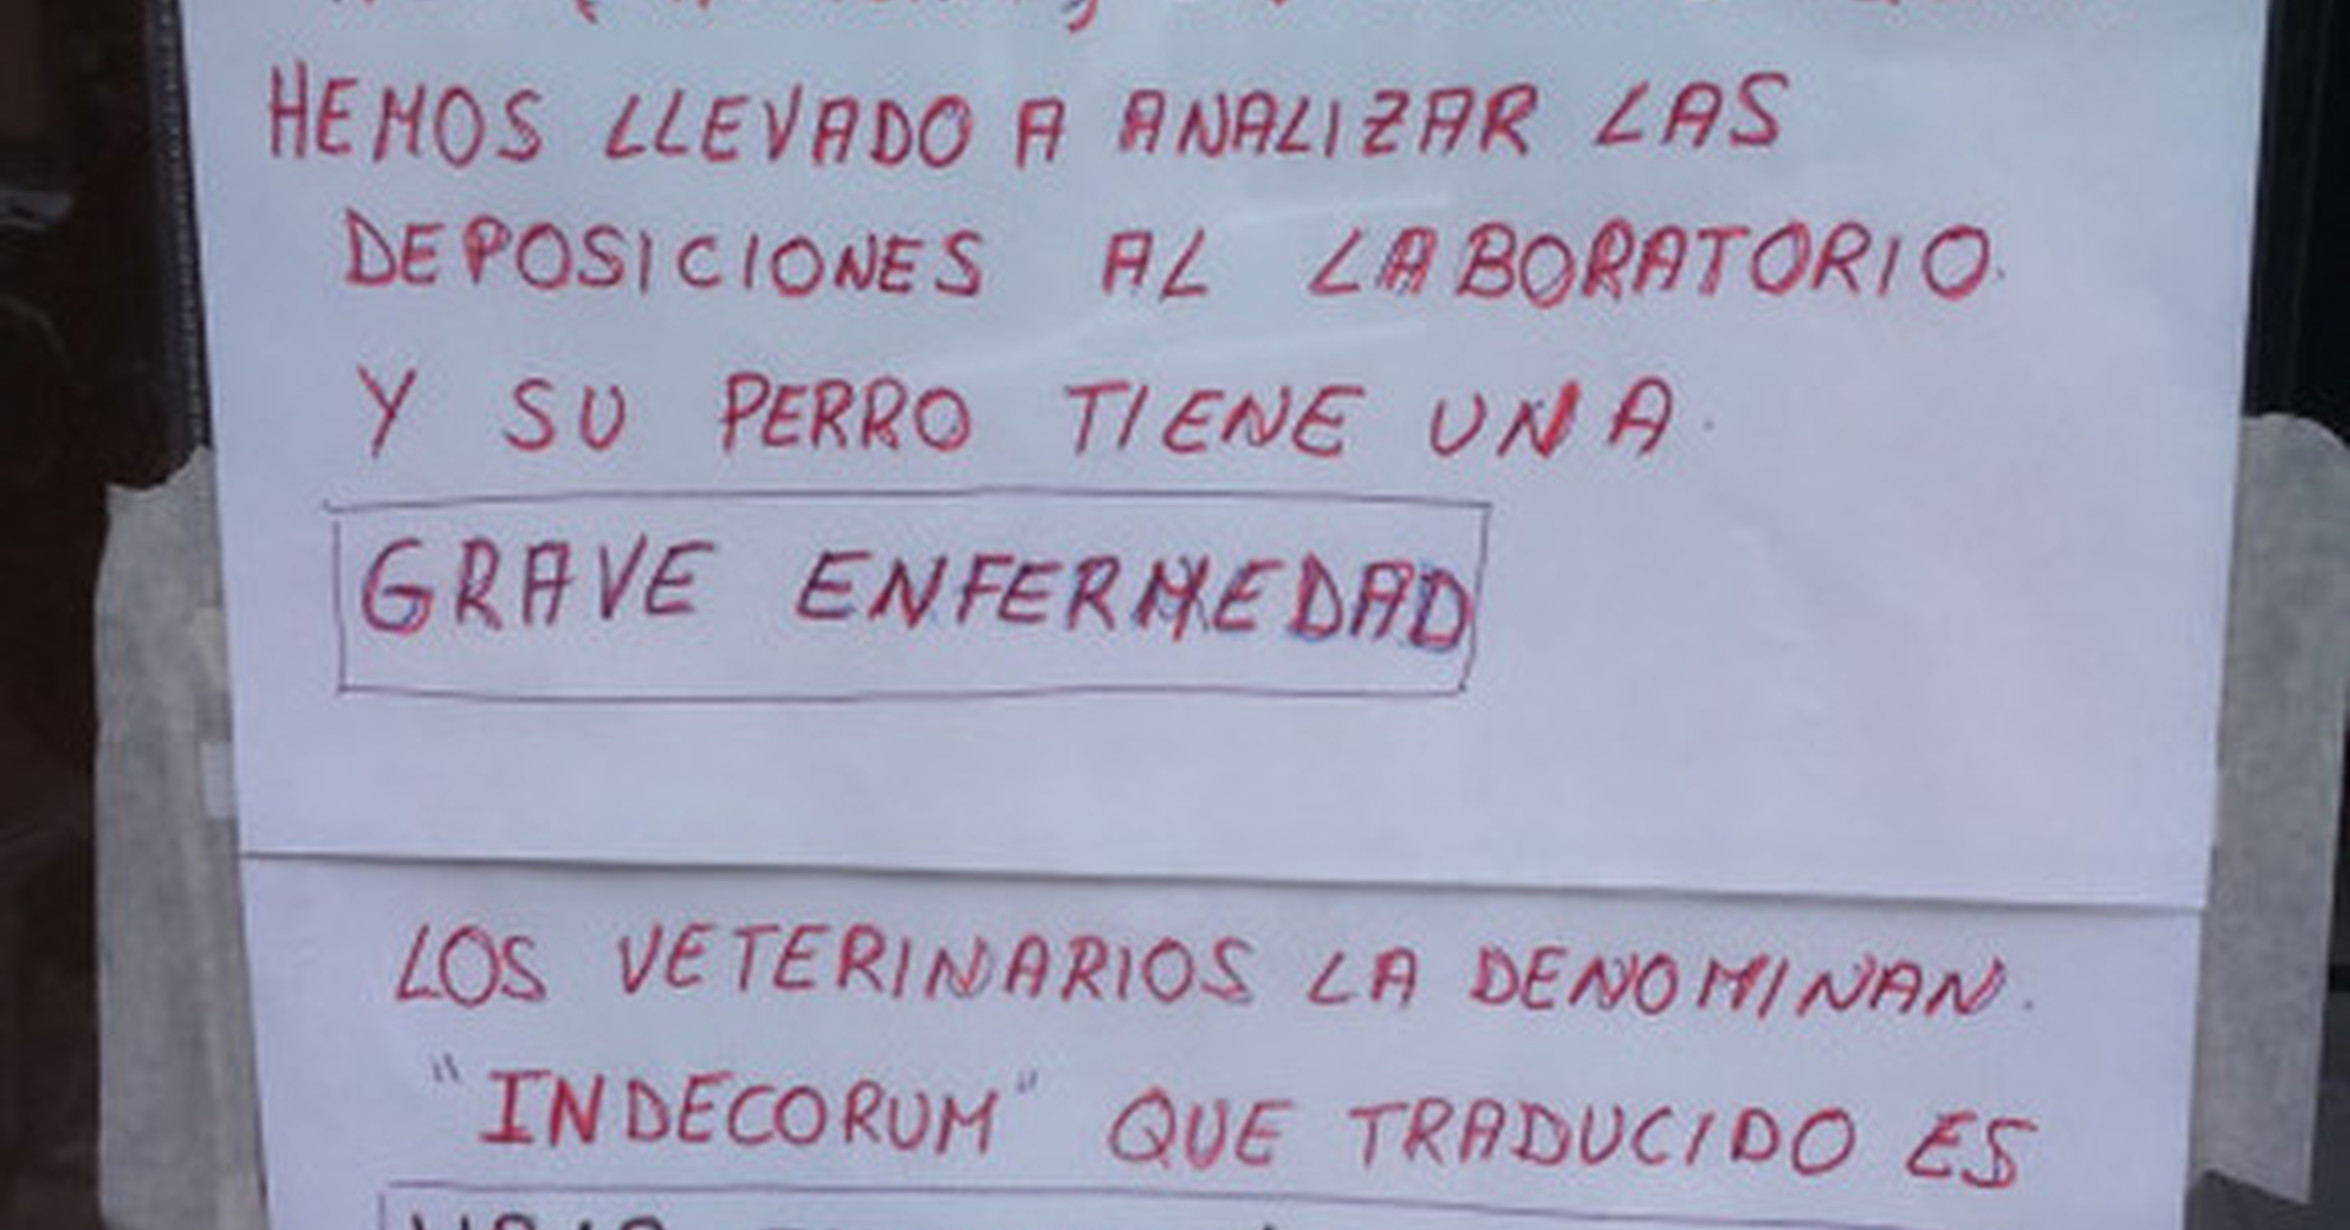 HEMOS LLEVADO A ANALIZAR LAS
DEPOSICIONES AL LABORATORIO.
Y SU PERRO TIENE UNA.
GRAVE ENFERMEDAD
LOS VETERINARIOS LA DENOMINAN.
"INDECORUM" QUE TRADUCIDO ES